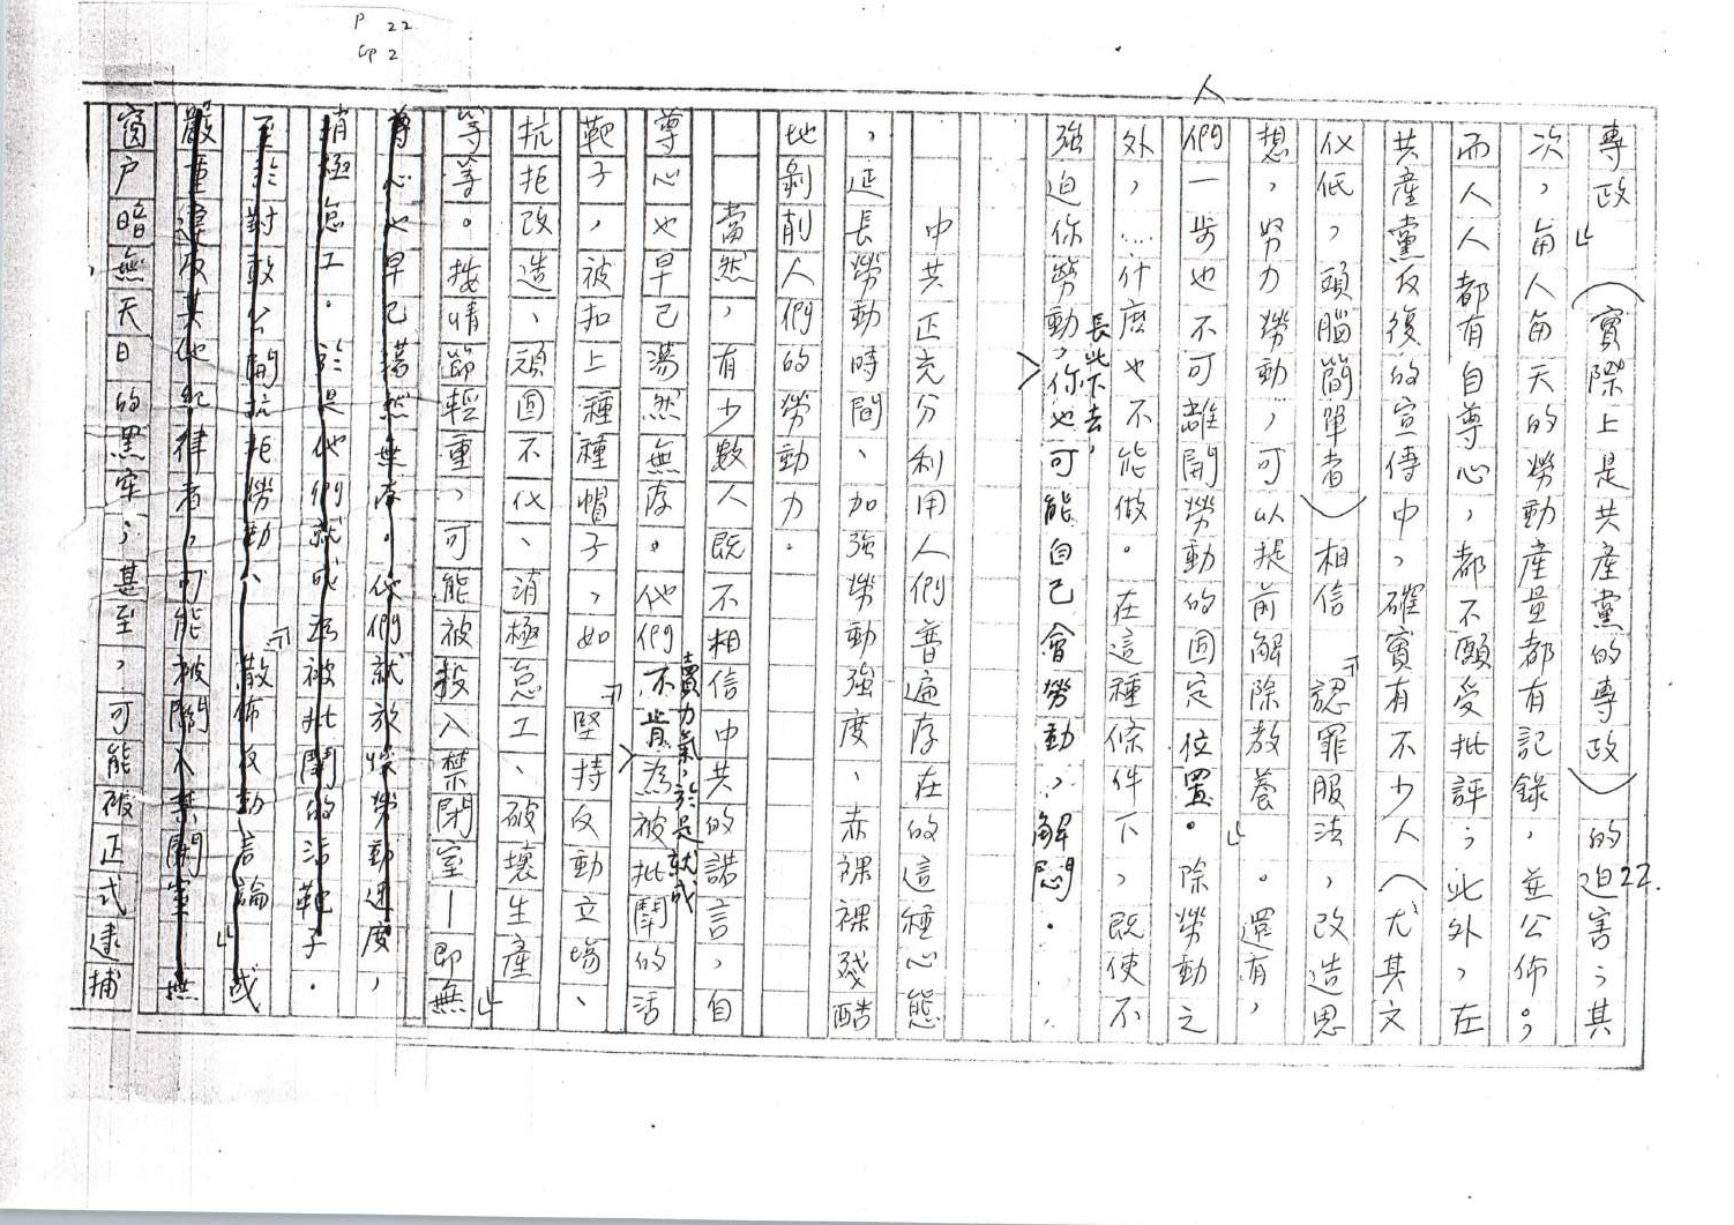 P 22
cp 2
22.
專政」（實際上是共產黨的專政）的迫害；其
次，每人每天的勞動產量都有記錄，並公佈。；
而人人都有自尊心，都不願受批評；此外，在
共產黨反復的宣傳中，確實有不少人（尤其文
化低，頭腦簡單者）相信『認罪服法，改造思
想，努力勞動，可以提前解除教養』。還有，
人
們一步也不可離開勞動的固定位置。除勞動之
外，……什庅也不能做。在這種條件下，既使不
長此下去，
強迫你勞動，你也可能自己會勞動，解悶。
中共正充分利用人們普遍存在的這種心態
，延長勞動時間、加強勞動強度、赤裸裸殘酷
地剝削人們的勞動力。
當然，有少數人既不相信中共的諾言，自
賣力氣，於是就成
尊心也早已蕩然無存。他們不肯為被批鬥的活
靶子，被扣上種種帽子，如『堅持反動立場、
抗拒改造、頑固不化、消極怠工、破壞生產』
等等。按情節輕重，可能被投入禁閉室—即無
尊心也早已蕩然無存。他們就放慢勞動速度，
消極怠工。於是他們就成為被批鬥的活靶子。
至於對敢公開抗拒勞動、『散佈反動言論』或
嚴重違反其他紀律者，可能被關入禁閉室 無
窗户暗無天日的黑牢；甚至，可能被正式逮捕